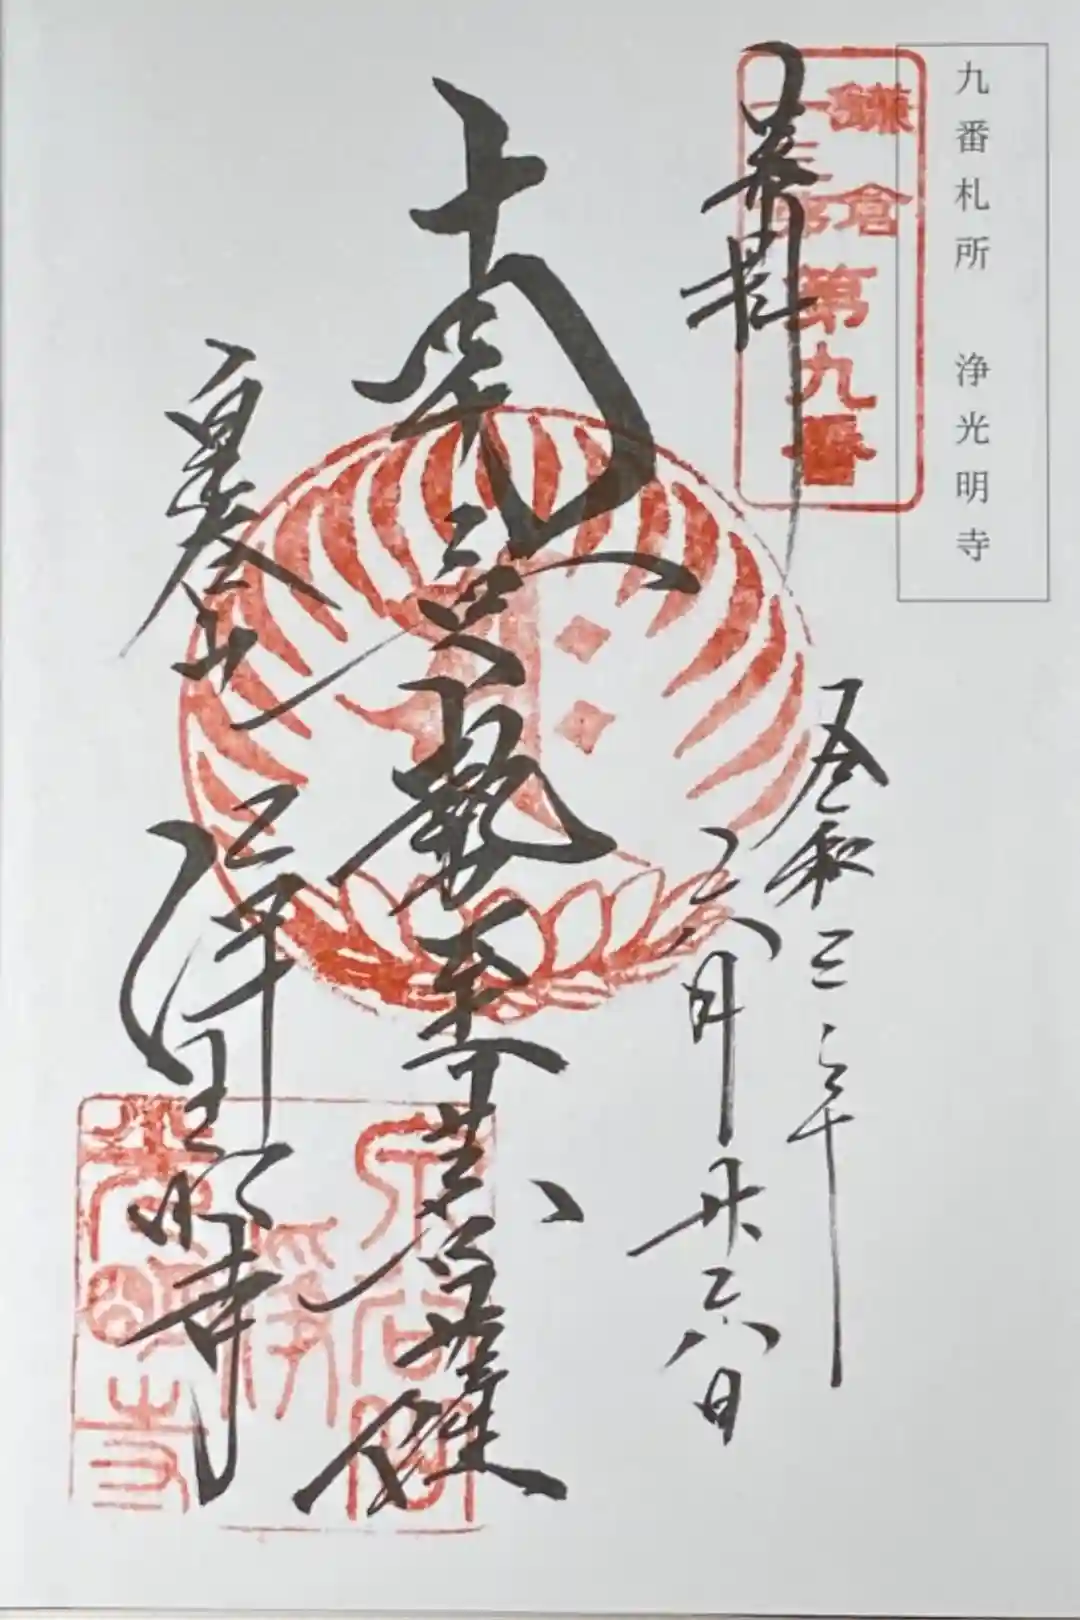 九番札所 浄光明寺
鎌倉
十三佛
第九番
奉拝
令和三年
六月廿六日
南無勢至菩薩
泉谷山
浄光明寺